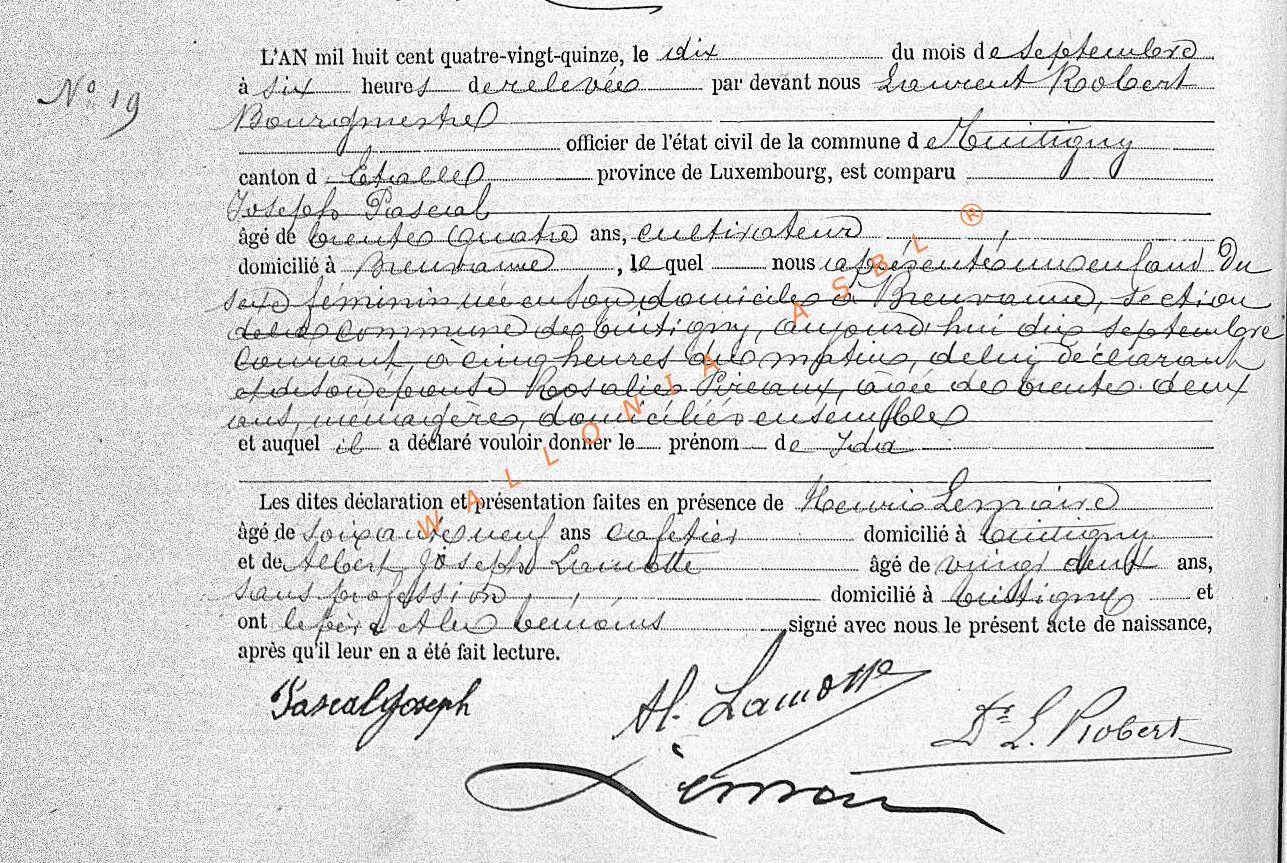 L'AN mil huit cent quatre-vingt-quinze, le dix du mois de Septembre
Nº 19
à six heures de relevée par devant nous Laurent Robert
Bourgmestre
officier de l'état civil de la commune de Tintigny
canton d'Etalle province de Luxembourg, est comparu
Joseph Pascal
âgé de trente quatre ans, cultivateur
domicilié à Breuvanne, lequel nous a présenté un enfant du
sexe féminin né en son domicile à Breuvanne, section
de la commune de Tintigny, aujourd'hui dix septembre
courant, à cinq heures du matin, de lui déclarant
et de son épouse Rosalie Pireaux, âgée de trente deux
ans, ménagère, domiciliés ensemble
et auquel il a déclaré vouloir donner le prénom de Ida
Les dites déclaration et présentation faites en présence de Henri Lemaire
âgé de soixante neuf ans cafetier domicilié à Tintigny
et de Albert Joseph Lamotte âgé de vingt deux ans,
sans profession domicilié à Tintigny et
ont le père & les témoins signé avec nous le présent acte de naissance,
après qu'il leur en a été fait lecture.
Pascal Joseph
Al. Lamotte
Dr L. Robert
WALLONIA ASBL ®